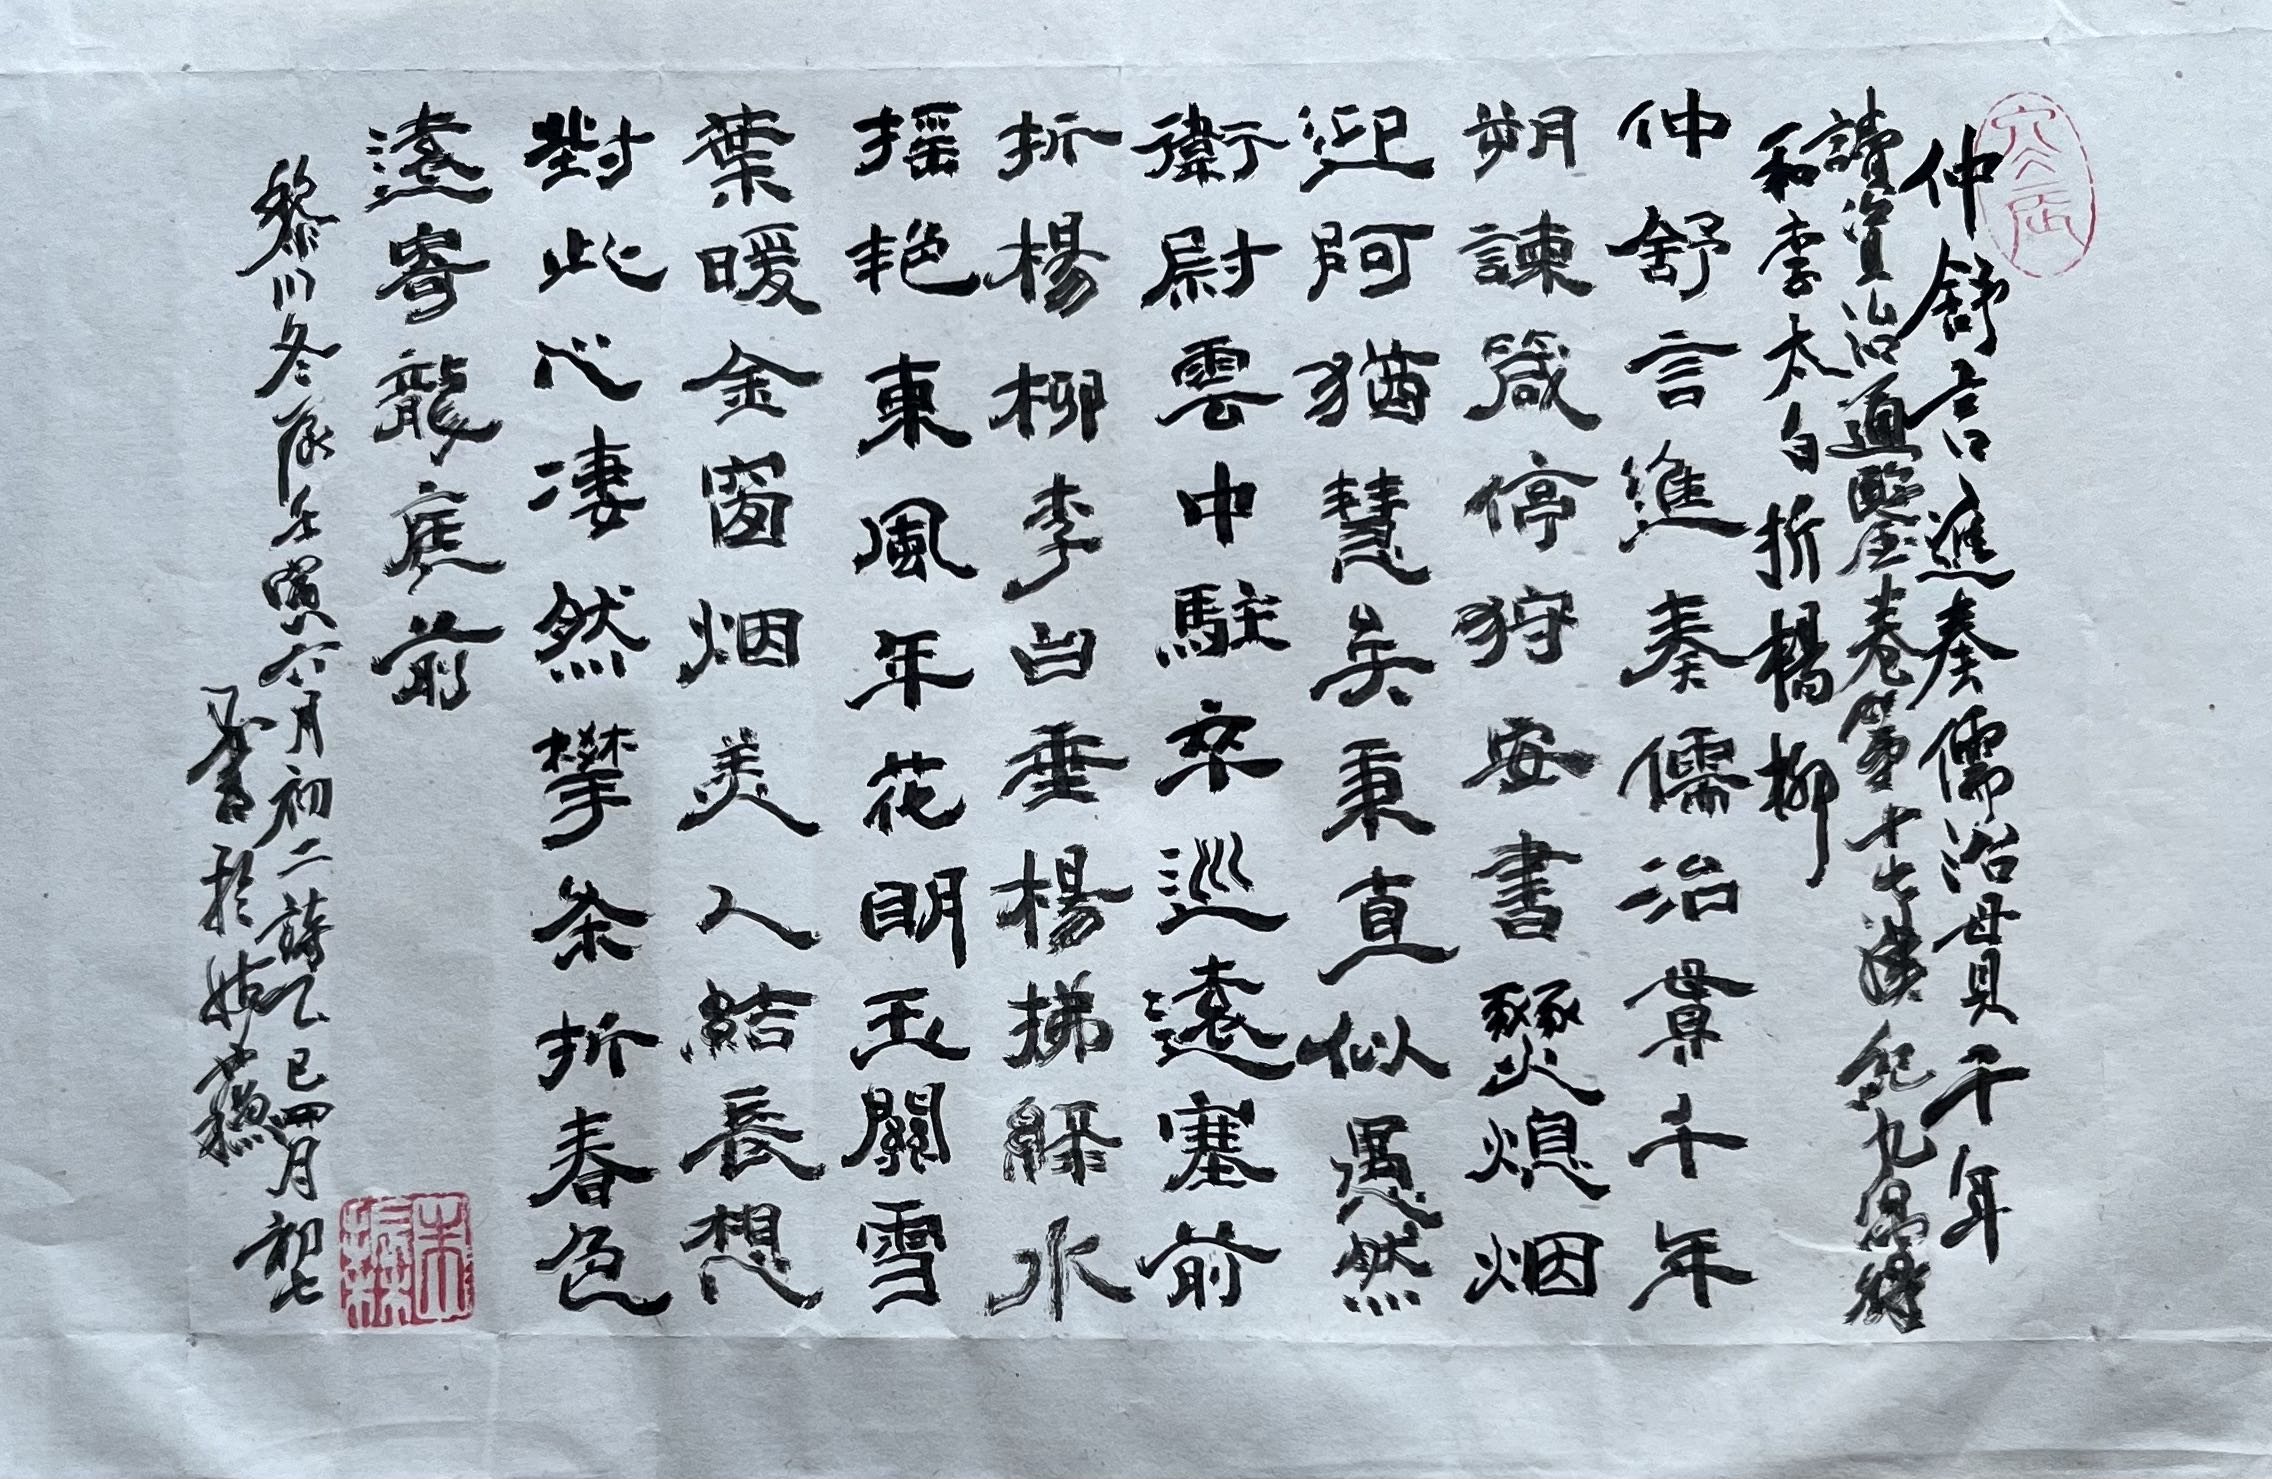 仲舒言進奏儒治贯千年
讀資治通鑒卷第十七漢紀九
和李太白折楊柳
仲舒言進奏儒治貫千年
朔諫箴停狩安書燹熄烟
迎阿猶慧矣秉直似愚然
衛尉雲中駐卒巡遠塞前
折楊柳李白垂楊拂綠水
摇艳東風年花明玉關雪
葉暖金窗烟美人結長想
對此心凄然攀条折春色
遠寄龍庭前
黎川冬辰壬寅六月初二詩乙巳四月初七
墨書於姑蘇